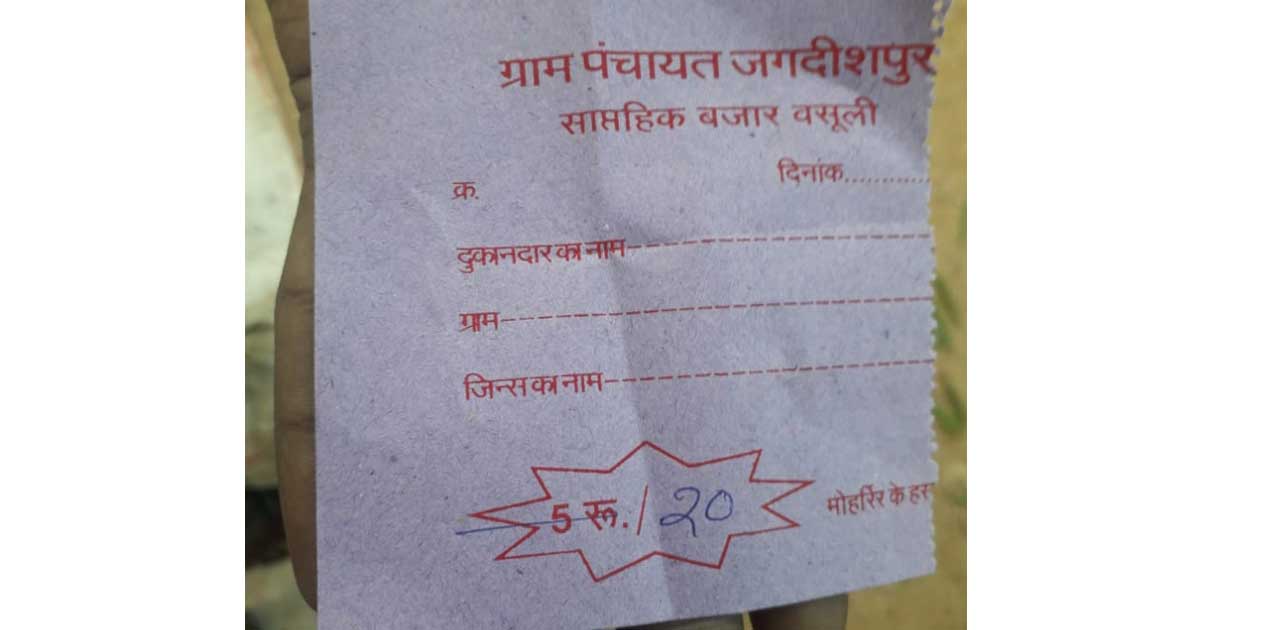 ग्राम पंचायत जगदीशपुर
साप्तहिक बजार वसूली
दिनांक............
क्र.
दुकानदार का नाम--------------------
ग्राम-----------------------------
जिन्स का नाम----------------------
5 रू./ २०
मोहर्रिर के